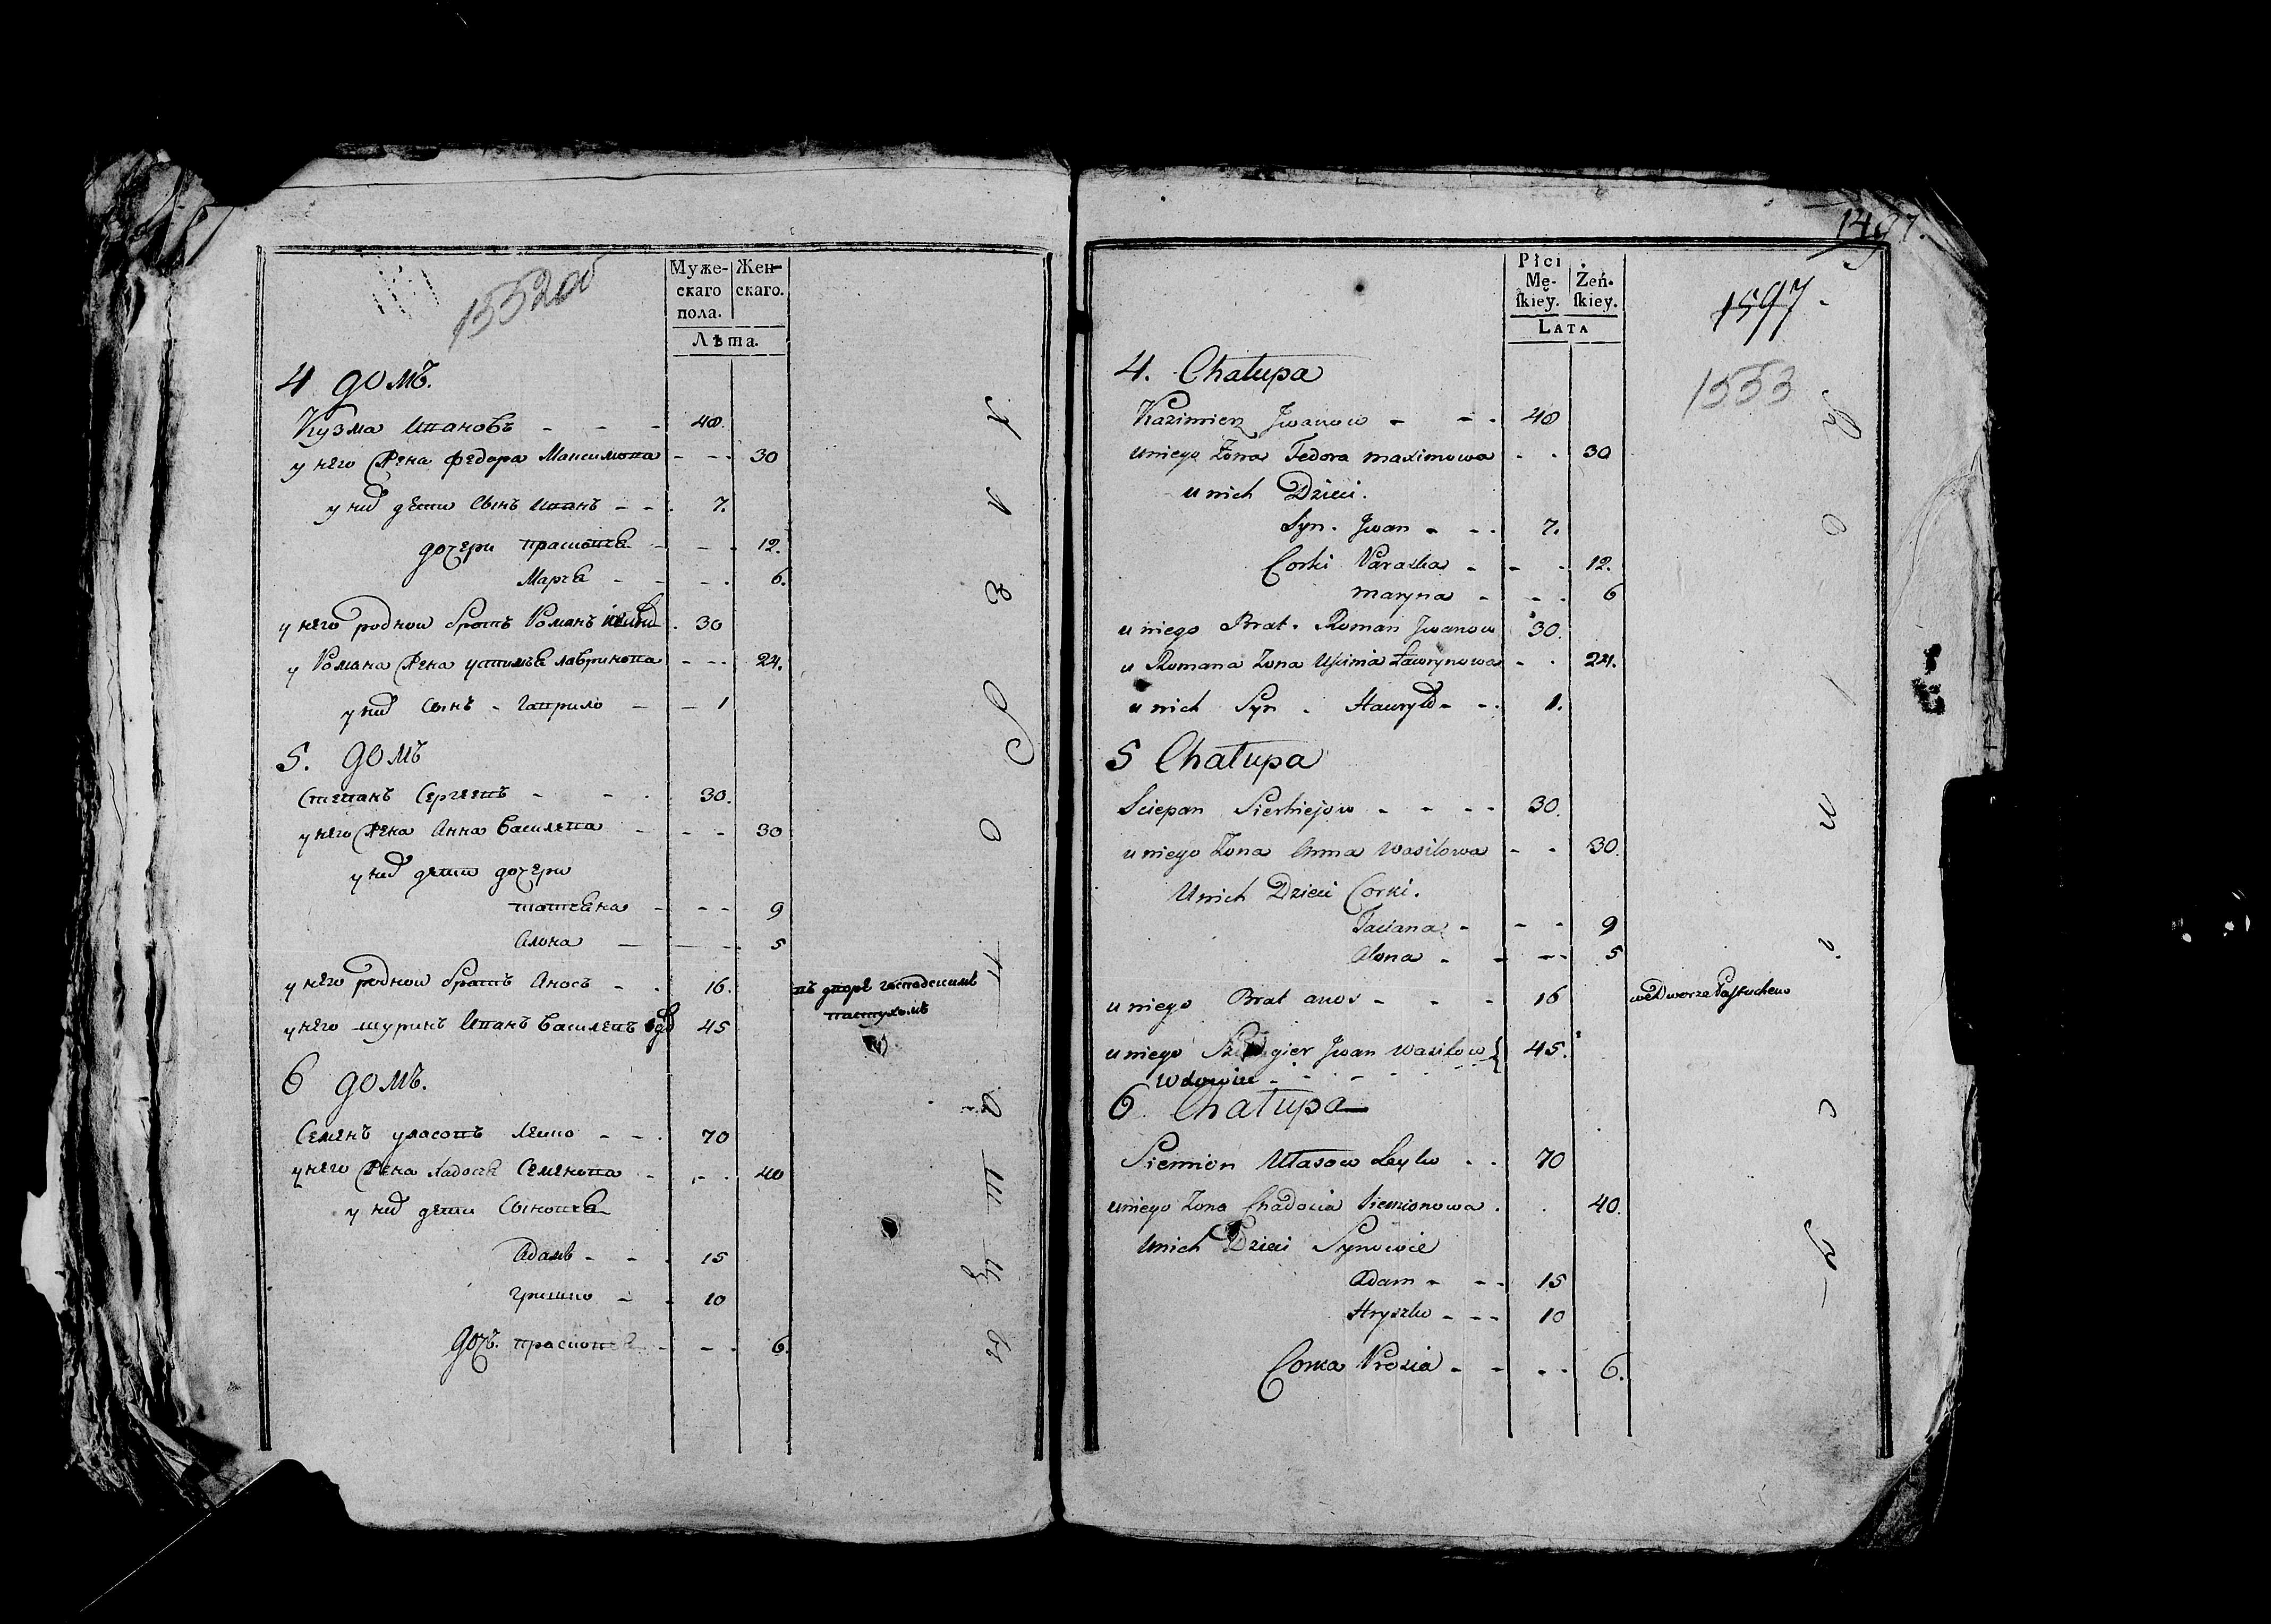 155200
Муже-
скаго
пола.
Жен-
скаго.
Лѣта.
4 домъ.
Кузма Ивановъ - - - 48.
у него жена федора Максимова - - - 30
у ниⷯ дети Сынъ Иванъ - - . 7.
дочери прасковея - - - 12.
Марея - - - - . 6.
у него родной братъ Романъ . 30
у Романа жена устинья лавринова - - - 24.
у ниⷯ Сынъ - гаврило - - 1
5. домъ
Степанъ Сергеевъ - - . 30.
у него жена Анна василева - - - 30
у ниⷯ дети дочери
татеяна - - - 9
Алона - - - 5
у него родной братъ Аносъ - . 16. въ дворе господскимъ
пастухомъ
у него шуринъ Иванъ василевъ 45
6 домъ.
Семенъ уласовъ лейко - - . 70
у него жена хадосея Семенова - . - . 40
у ниⷯ дети Сыновея
Адамъ - - . 15
гришко - . 10
дочъ. прасковея - - . 6.
1497.
Płci
Mę-
ſkiey.
Żeń-
ſkiey.
LATA
1597.
1553
4. Chałupa
Kazimierz Jwanow - - . 48
u niego Żona Fedora maximowa - . 30
u nich Dzieci.
Syn. Jwan - - . 7.
Corki Paraska - - . 12.
maryna - - . 6
u niego Brat. Roman Jwanow 30.
u Romana Żona Uscinia Ławrynowa - . 24.
u nich Syn . Hawryło - - . 1.
5 Chałupa
Sciepan Sierhiejow - - - - 30.
u niego Żona Anna Wasilowa - - 30.
U nich Dzieci Corki.
Taciana - - - 9
Alona - - - - 5
u niego Brat anos - - - 16 we Dworze Paſtuchem
u niego Szwagier Jwan Wasilow 45.
Wdowiec - - -
6 Chałupa
Siemion Ułasow Leyko . . 70
u niego Żona Chadosia Siemionowa . . 40.
U nich Dzieci Synowie
Adam - - - 15
Hryszko - - - 10
Corka Prosia - - - - 6.